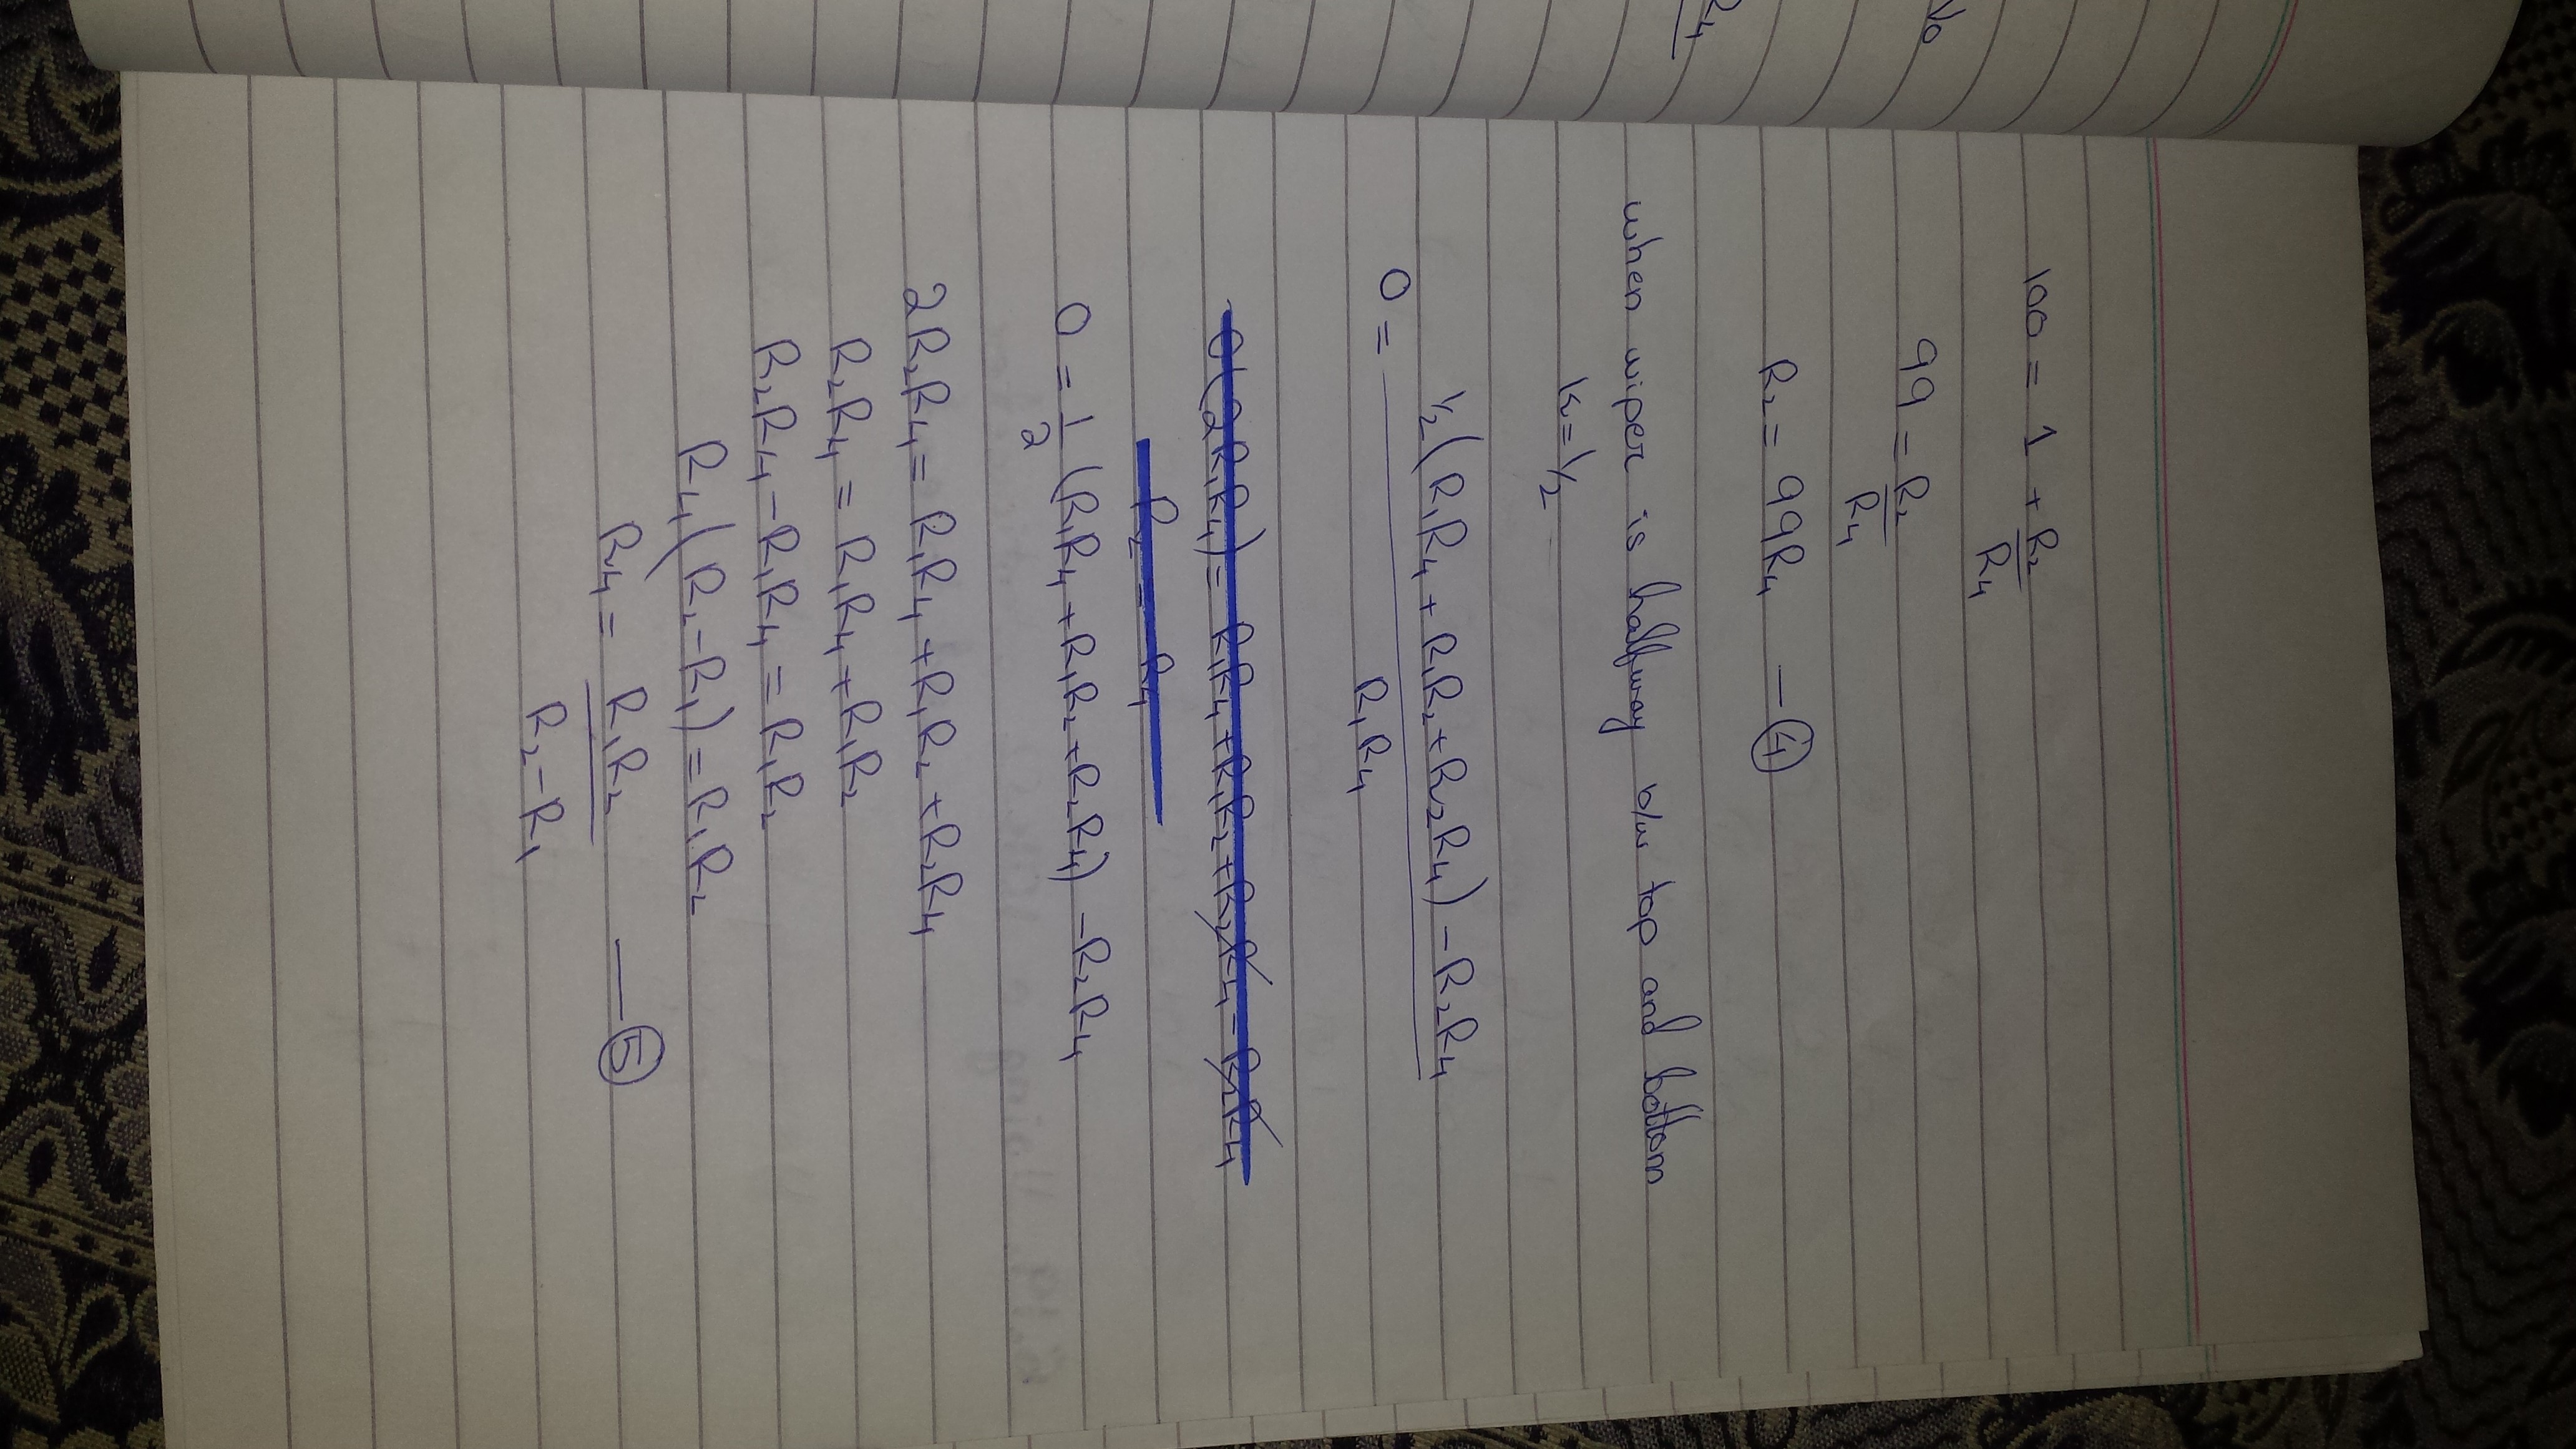 Vo
R4
100 = 1 + R2/R4
99 = R2/R4
R2 = 99R4 — 4
when wiper is halfway b/w top and bottom
k = 1/2
0 = 1/2(R1R4 + R1R2 + R2R4) - R2R4 / R1R4
0(2R1R4) = R1R4 + R1R2 + R2R4 - R2R4
R2 = R4
0 = 1/2 (R1R4 + R1R2 + R2R4) - R2R4
2R2R4 = R1R4 + R1R2 + R2R4
R2R4 = R1R4 + R1R2
R2R4 - R1R4 = R1R2
R4(R2 - R1) = R1R2
R4 = R1R2 / R2 - R1 — 5